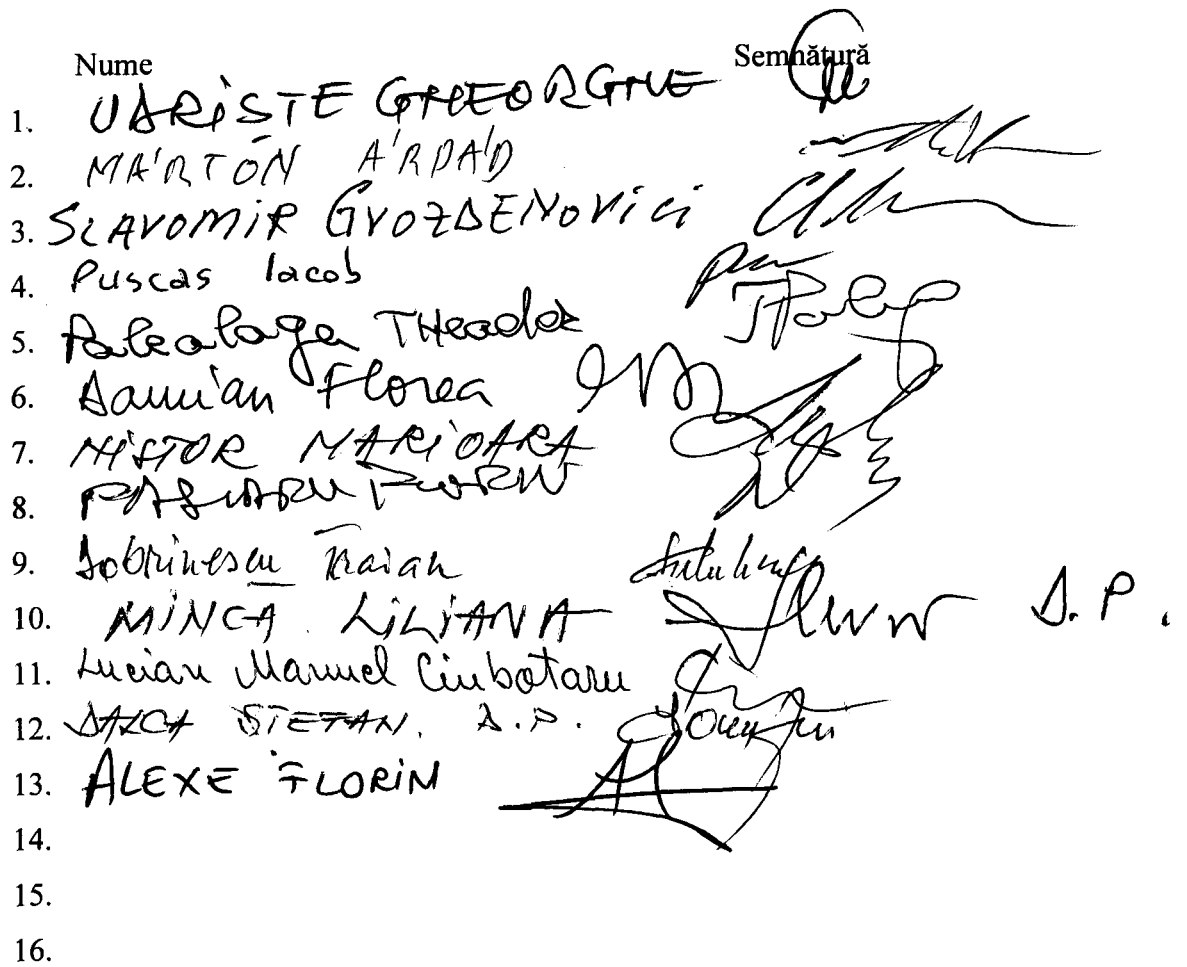 Nume Semnătură
1. UDRIȘTE GHEORGHE
2. MÁRTON ÁRPÁD
3. SLAVOMIR GVOZDENOVICI
4. Puscas Iacob
5. Paleologu THeodor
6. Damian Florea
7. NISTOR MARIOARA
8. PÂSLARU FLORIN
9. Dobrinescu Traian
10. MINCA LILIANA D.P.
11. Lucian Manuel Ciubotaru
12. DALCA STEFAN. D.P.
13. ALEXE FLORIN
14.
15.
16.